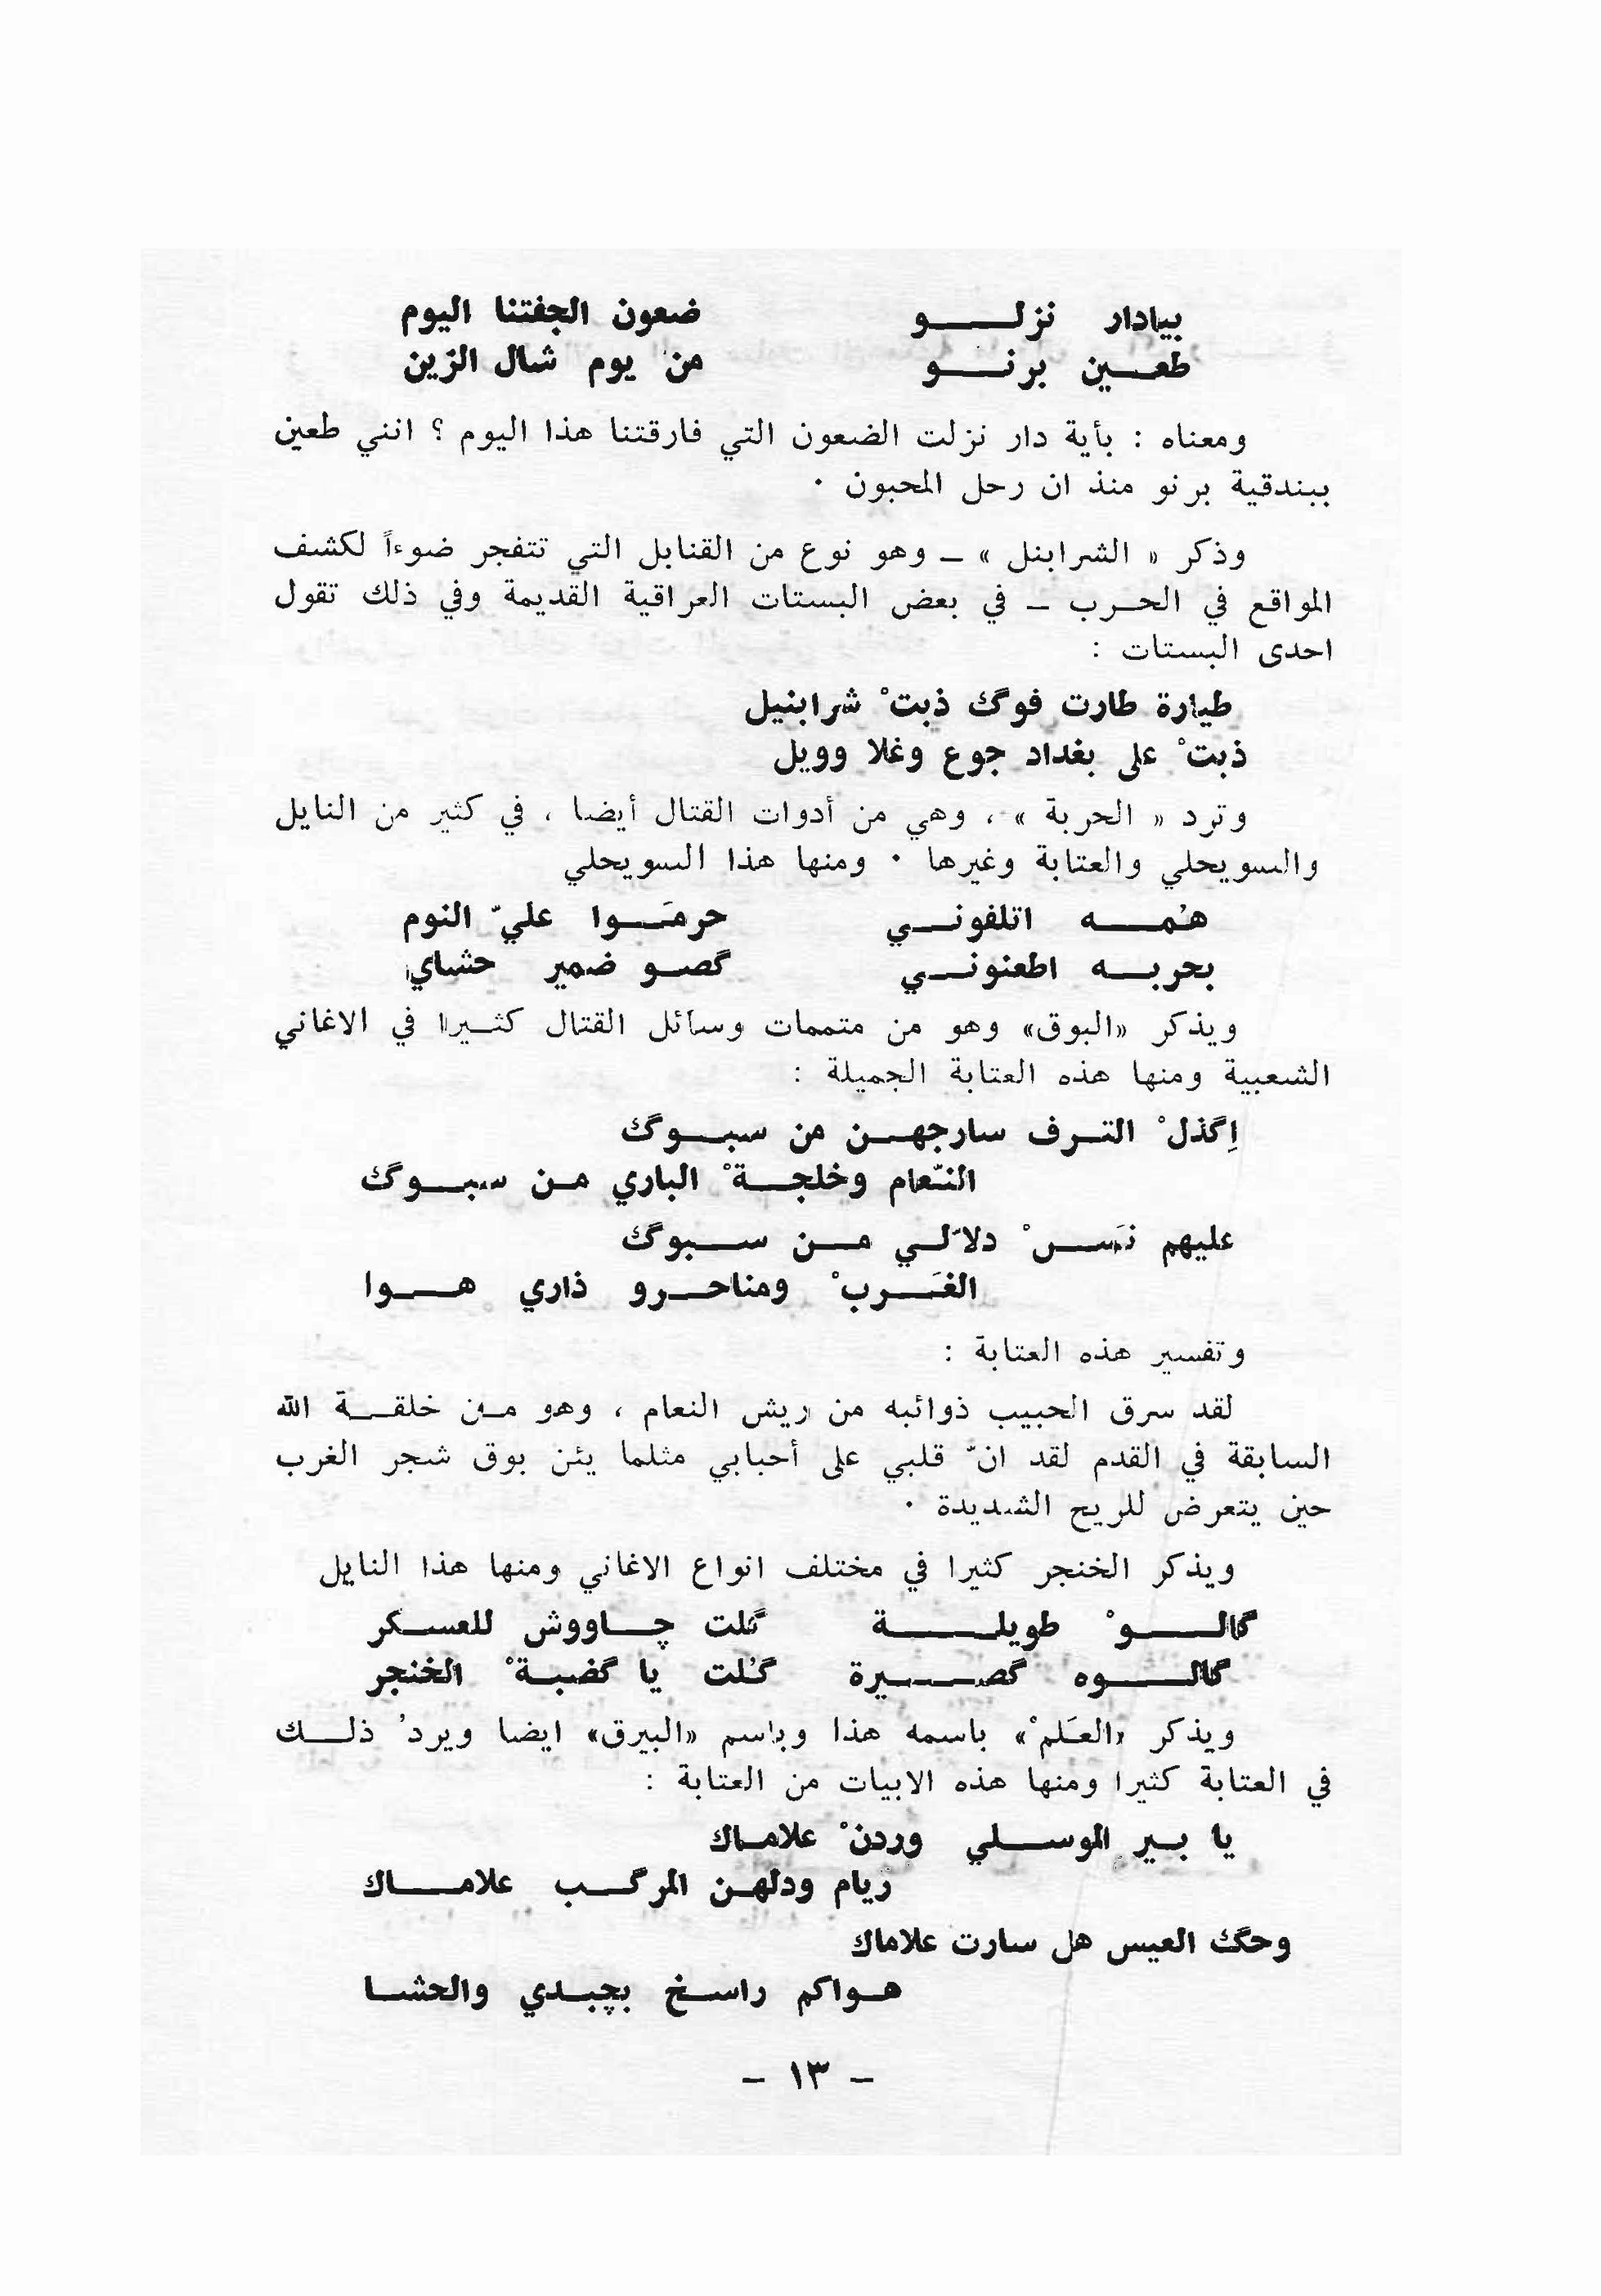 بيادار نزلـــو ضعون الجفتنا اليوم
طعــين برنــو من يوم شال الزين
ومعناه : بأية دار نزلت الضعون التي فارقتنا هذا اليوم ؟ انني طعين
ببندقية برنو منذ ان رحل المحبون ٠
وذكر « الشرابنل » ــ وهو نوع من القنابل التي تتفجر ضوءاً لكشف
المواقع في الحــرب ــ في بعض البستات العراقية القديمة وفي ذلك تقول
احدى البستات :
طيارة طارت فوگ ذبتْ شرابنيل
ذبتْ على بغداد جوع وغلا وويل
وترد « الحربة » ، وهي من أدوات القتال أيضا ، في كثير من النايل
والسويحلي والعتابة وغيرها ٠ ومنها هذا السويحلي
هُمــه اتلفونــي حرمَــوا عليّ النوم
بحربــه اطعنونــي گصــو ضمير حشاي
ويذكر «البوق» وهو من متممات وسائل القتال كثــيرا في الاغاني
الشعبية ومنها هذه العتابة الجميلة :
اِگذلْ التــرف سارجهــن من سبــوگ
النّعام وخلجــةْ الباري مـن سبــوگ
عليهم نَســْ دلاّلــي مــن ســبوگ
الغَــربْ ومناحــرو ذاري هــوا
وتفسير هذه العتابة :
لقد سرق الحبيب ذوائبه من ريش النعام ، وهو مــن خلقــة الله
السابقة في القدم لقد انّ قلبي على أحبابي مثلما يئن بوق شجر الغرب
حين يتعرض للريح الشديدة ٠
ويذكر الخنجر كثيرا في مختلف انواع الاغاني ومنها هذا النايل
گالـــوْ طويلـــة گلت چــاووش للعســكر
گالـــوه گصـــيرة گُلت يا گضبــةْ الخنجر
ويذكر «العَلمْ» باسمه هذا وباسم «البيرق» ايضا ويردُ ذلــك
في العتابة كثيرا ومنها هذه الابيات من العتابة :
يا بــير الموســلي وردنْ علامــاك
ريام ودلهــن المرگــب علامــاك
وحگ العيس هل سارت علاماك
هــواكم راســخ بچبــدي والحشــا
– ١٣ –